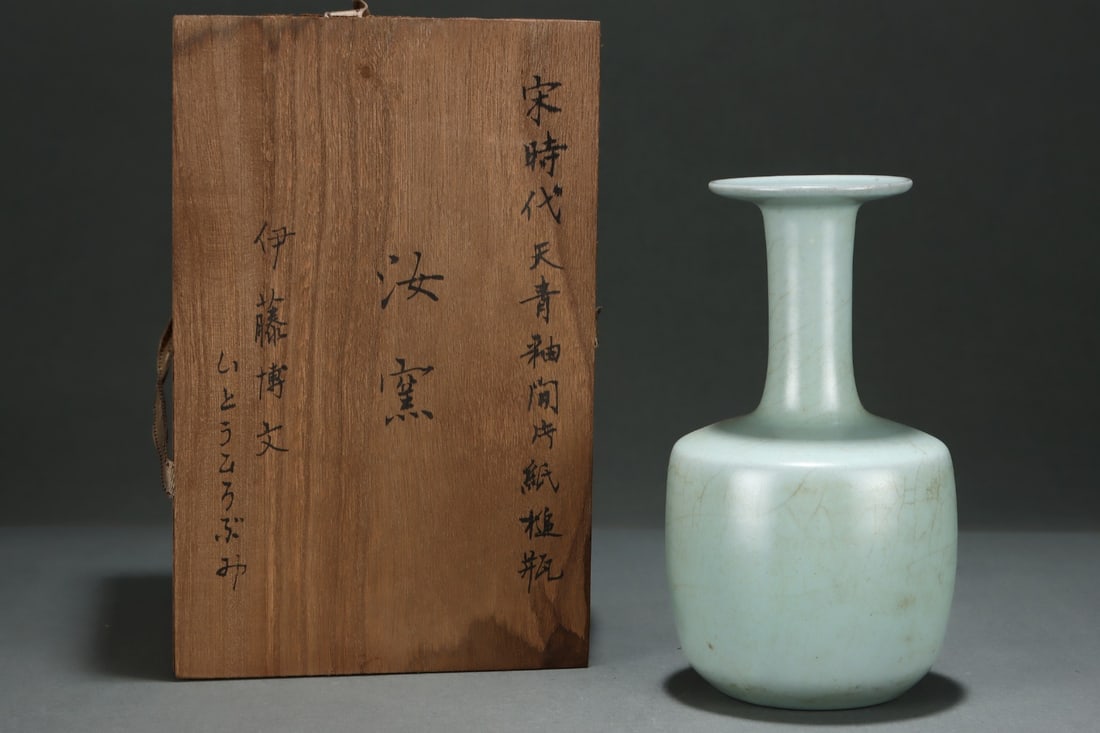 宋時代天青釉開片紙槌瓶
汝窯
伊藤博文
いとうひろぶみ